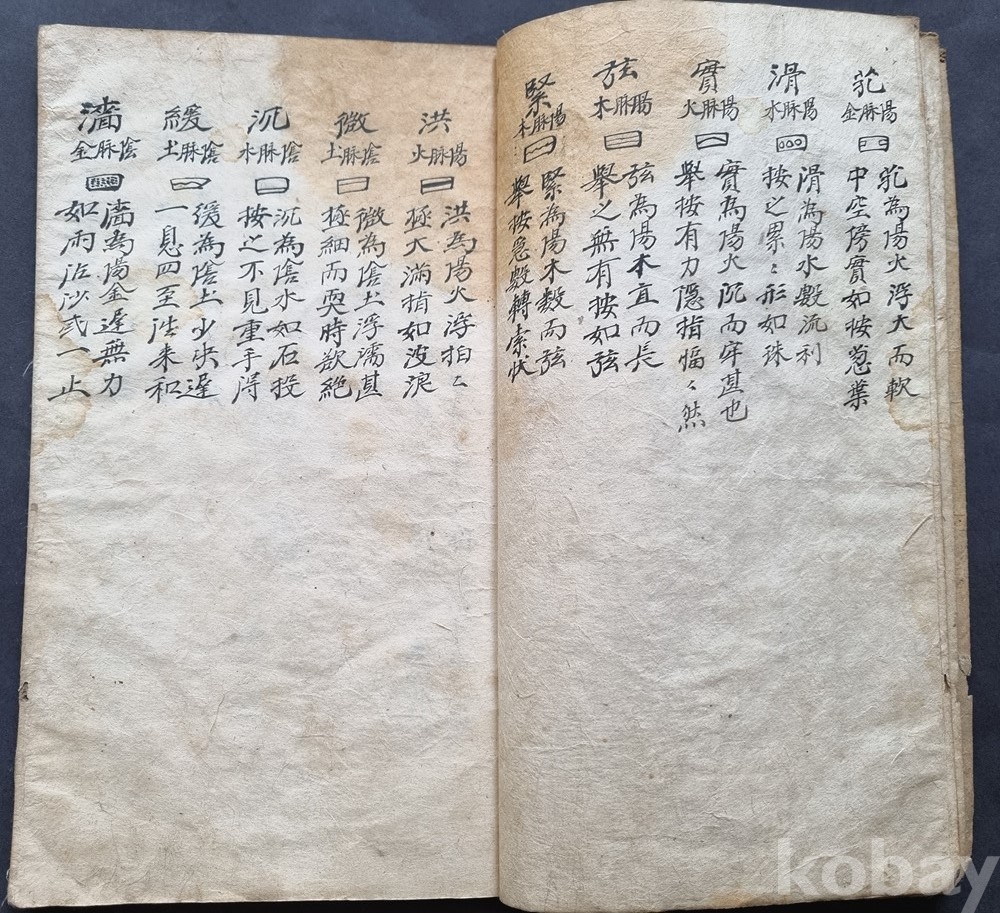 芤
陽脉金
芤為陽火浮大而軟
中空傍實如按葱葉
滑
陽脉水
滑為陽水數流利
按之累〻形如珠
實
陽脉火
實為陽火沉而牢甚也
舉按有力隱指愊〻然
弦
陽脉木
弦為陽木直而長
舉之無有按如弦
緊
陽脉木
緊為陽木數而弦
舉按急數轉索狀
洪
陽脉火
洪為陽火浮拍〻
極大滿指如波浪
微
陰脉土
微為陰土浮濡甚
極細而耎時欲絕
沉
陰脉水
沉為陰水如石投
按之不見重手得
緩
陰脉土
緩為陰土少决遲
一息四至徃来和
濇
陰脉金
濇為陽金遲無力
如雨沾沙弎一止
kobay